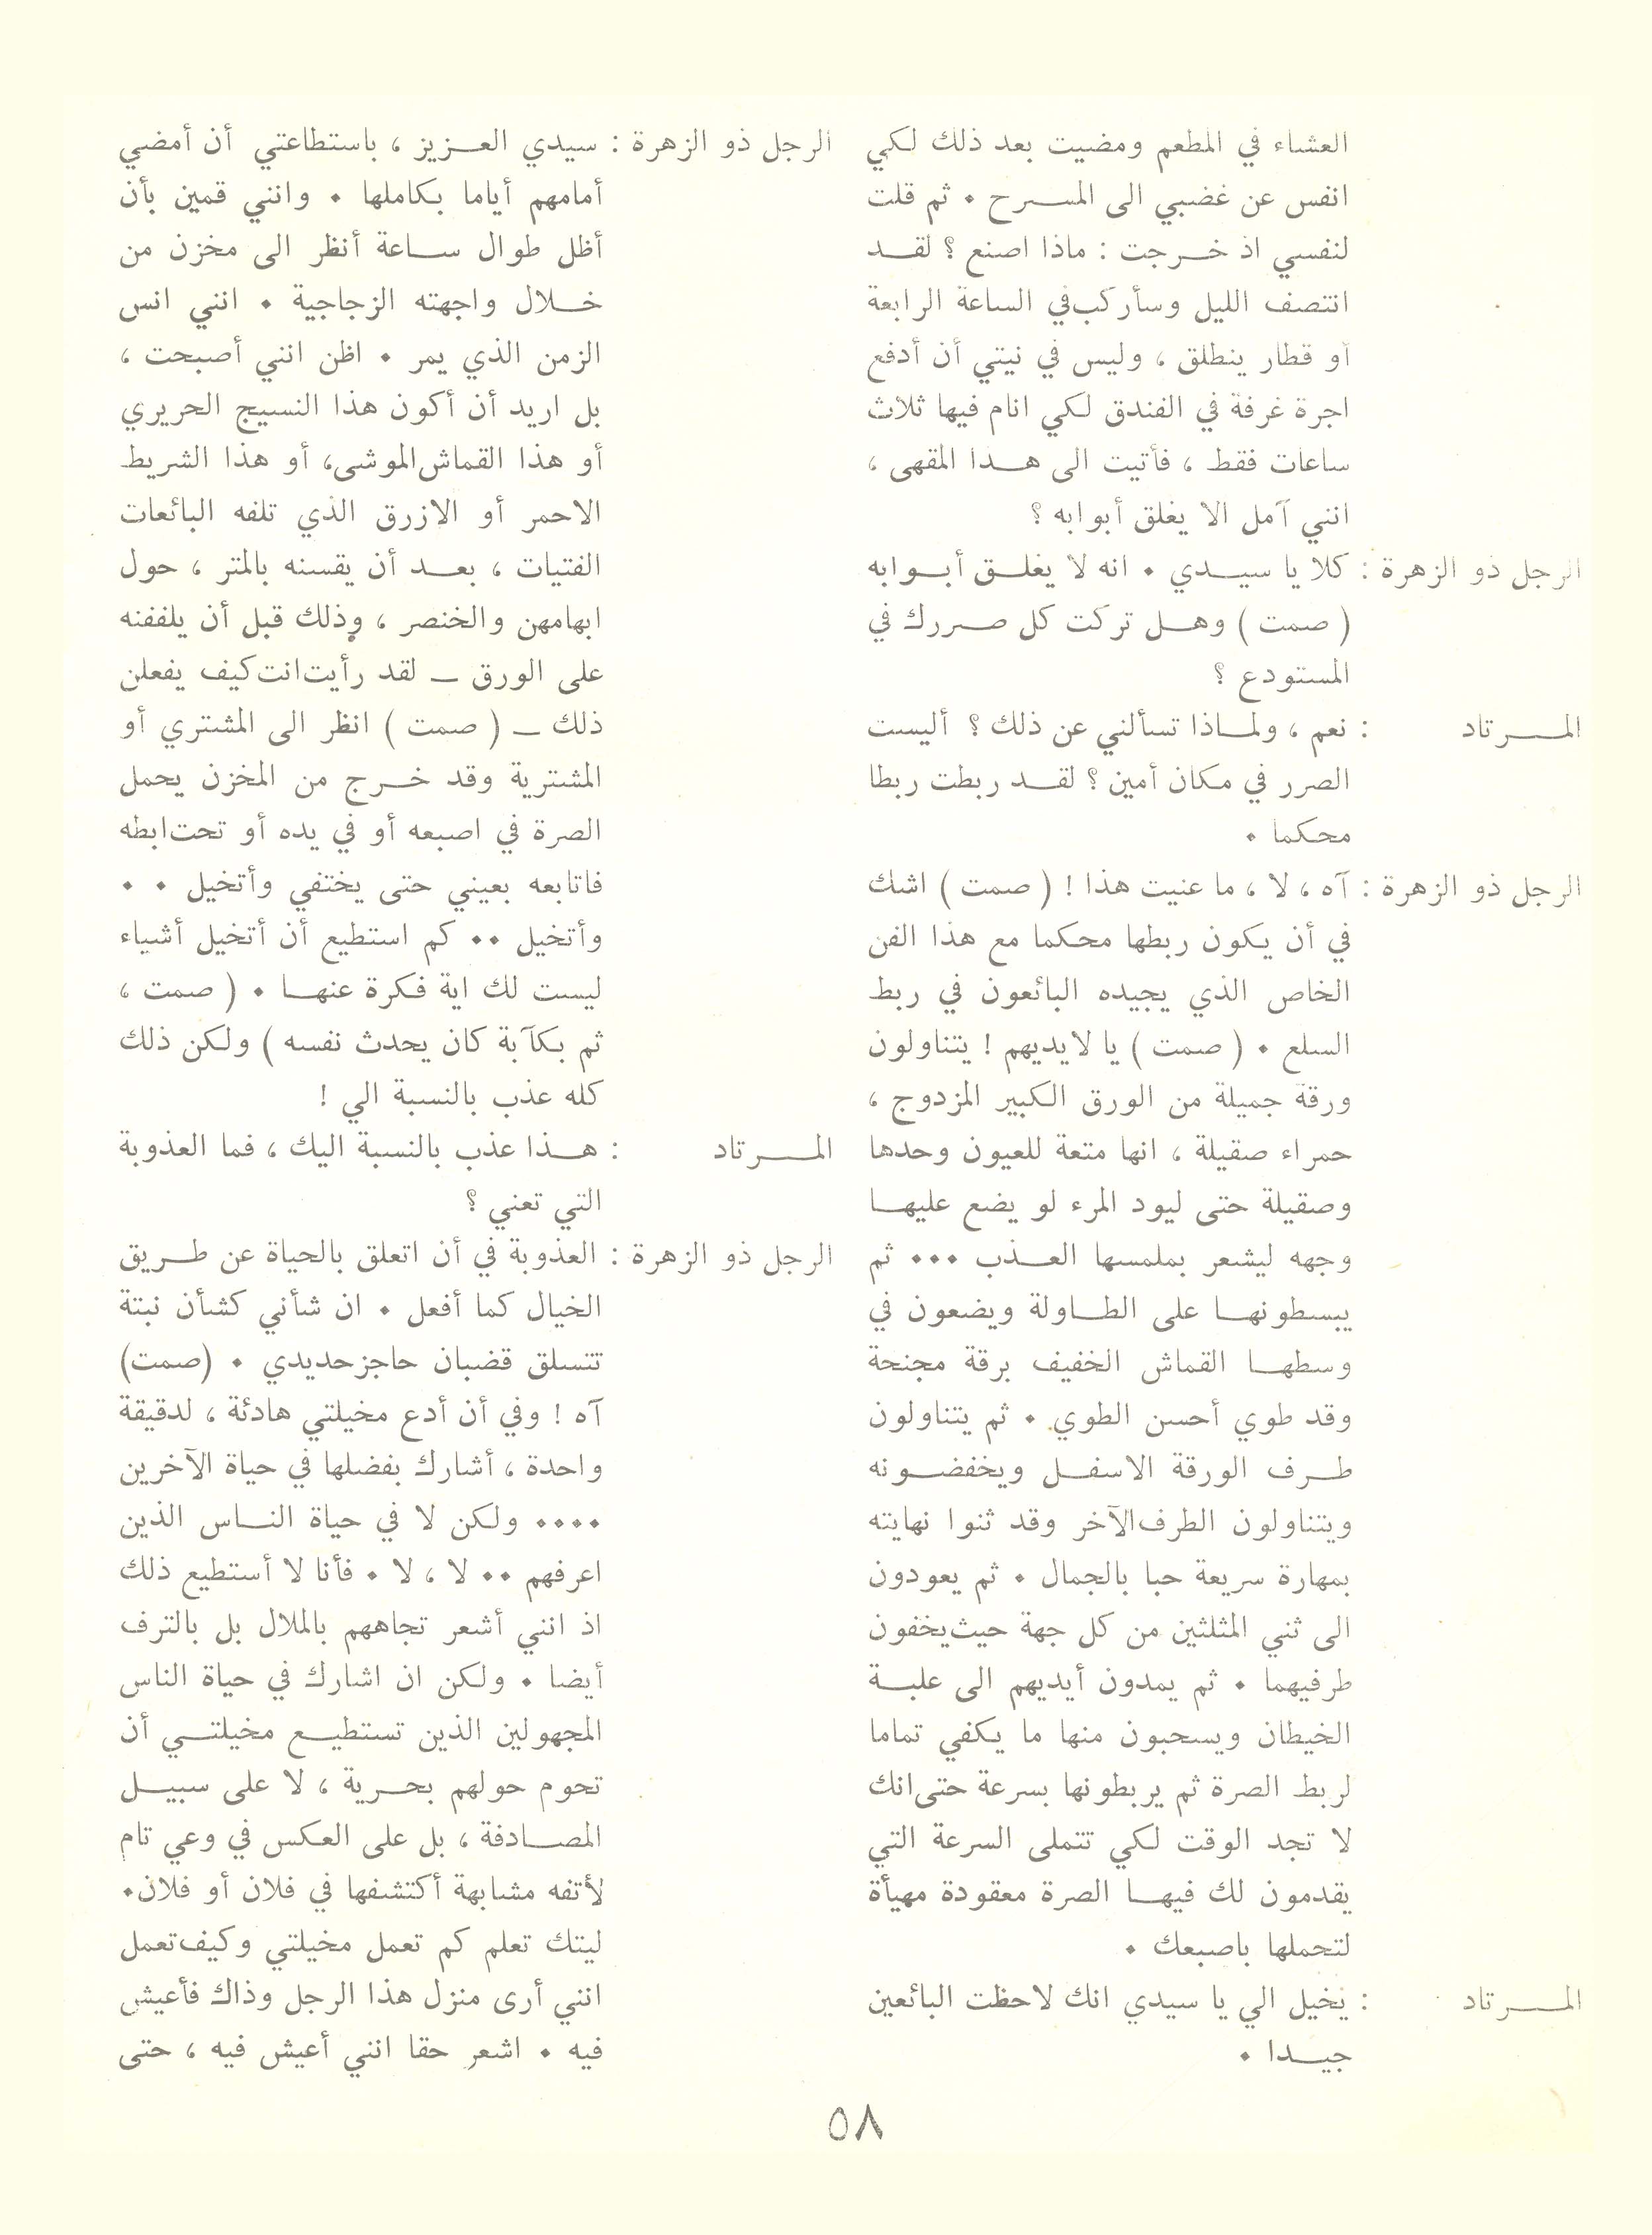 العشاء في المطعم ومضيت بعد ذلك لكي
انفس عن غضبي الى المسرح . ثم قلت
لنفسي اذ خرجت : ماذا اصنع ؟ لقد
انتصف الليل وسأركب في الساعة الرابعة
أو قطار ينطلق ، وليس في نيتي أن أدفع
اجرة غرفة في الفندق لكي انام فيها ثلاث
ساعات فقط ، فأتيت الى هذا المقهى ،
انني آمل الا يغلق أبوابه ؟
الرجل ذو الزهرة : كلا يا سيدي . انه لا يغلق أبوابه
( صمت ) وهل تركت كل صررك في
المستودع ؟
المرتاد : نعم ، ولماذا تسألني عن ذلك ؟ أليست
الصرر في مكان أمين ؟ لقد ربطت ربطا
محكما .
الرجل ذو الزهرة : آه ، لا ، ما عنيت هذا ! ( صمت ) اشك
في أن يكون ربطها محكما مع هذا الفن
الخاص الذي يجيده البائعون في ربط
السلع . ( صمت ) يا لايديهم ! يتناولون
ورقة جميلة من الورق الكبير المزدوج ،
حمراء صقيلة ، انها متعة للعيون وحدها
وصقيلة حتى ليود المرء لو يضع عليها
وجهه ليشعر بملمسها العذب ... ثم
يبسطونها على الطاولة ويضعون في
وسطها القماش الخفيف برقة مجنحة
وقد طوي أحسن الطوي . ثم يتناولون
طرف الورقة الاسفل ويخفضونه
ويتناولون الطرف الآخر وقد ثنوا نهايته
بمهارة سريعة حبا بالجمال . ثم يعودون
الى ثني المثلثين من كل جهة حيث يخفون
طرفيهما . ثم يمدون أيديهم الى علبة
الخيطان ويسحبون منها ما يكفي تماما
لربط الصرة ثم يربطونها بسرعة حتى انك
لا تجد الوقت لكي تتملى السرعة التي
يقدمون لك فيها الصرة معقودة مهيأة
لتحملها باصبعك .
المرتاد : يخيل الي يا سيدي انك لاحظت البائعين
جيدا .
الرجل ذو الزهرة : سيدي العزيز ، باستطاعتي أن أمضي
أمامهم أياما بكاملها . وانني قمين بأن
أظل طوال ساعة أنظر الى مخزن من
خلال واجهته الزجاجية . انني انس
الزمن الذي يمر . اظن انني أصبحت ،
بل اريد أن أكون هذا النسيج الحريري
أو هذا القماش الموشى، أو هذا الشريط
الاحمر أو الازرق الذي تلفه البائعات
الفتيات ، بعد أن يقسنه بالمتر ، حول
ابهامهن والخنصر ، وذلك قبل أن يلففنه
على الورق – لقد رأيت انت كيف يفعلن
ذلك – ( صمت ) انظر الى المشتري أو
المشترية وقد خرج من المخزن يحمل
الصرة في اصبعه أو في يده أو تحت ابطه
فاتابعه بعيني حتى يختفي وأتخيل . .
وأتخيل .. كم استطيع أن أتخيل أشياء
ليست لك اية فكرة عنها . ( صمت ،
ثم بكآبة كان يحدث نفسه ) ولكن ذلك
كله عذب بالنسبة الي !
المرتاد : هذا عذب بالنسبة اليك ، فما العذوبة
التي تعني ؟
الرجل ذو الزهرة : العذوبة في أن اتعلق بالحياة عن طريق
الخيال كما أفعل . ان شأني كشأن نبتة
تتسلق قضبان حاجز حديدي . (صمت)
آه ! وفي أن أدع مخيلتي هادئة ، لدقيقة
واحدة ، أشارك بفضلها في حياة الآخرين
.... ولكن لا في حياة الناس الذين
اعرفهم .. لا ، لا . فأنا لا أستطيع ذلك
اذ انني أشعر تجاههم بالملال بل بالترف
أيضا . ولكن ان اشارك في حياة الناس
المجهولين الذين تستطيع مخيلتي أن
تحوم حولهم بحرية ، لا على سبيل
المصادفة ، بل على العكس في وعي تام
لأتفه مشابهة أكتشفها في فلان أو فلان.
ليتك تعلم كم تعمل مخيلتي وكيف تعمل
انني أرى منزل هذا الرجل وذاك فأعيش
فيه . اشعر حقا انني أعيش فيه ، حتى
٥٨